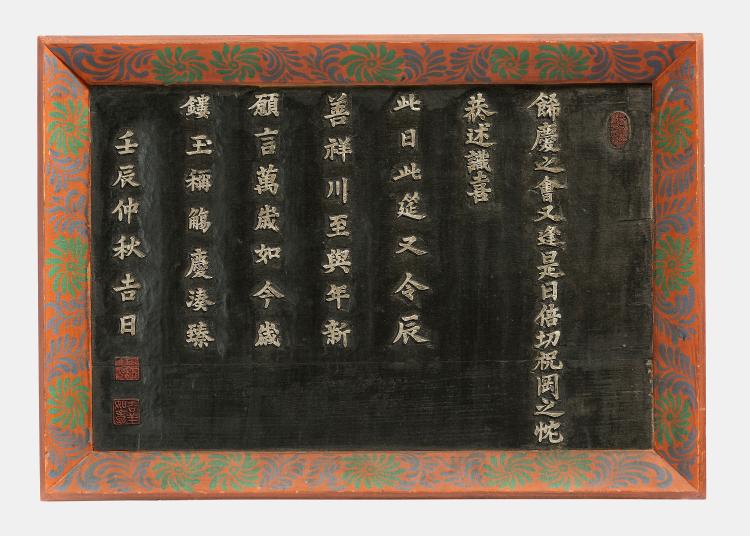 餙慶之會又逢是日倍切祝岡之忱
恭述識喜
此日此筵又令辰
善祥川至與年新
願言萬歲如今歲
鏤玉稱觴慶湊臻
壬辰仲秋吉日